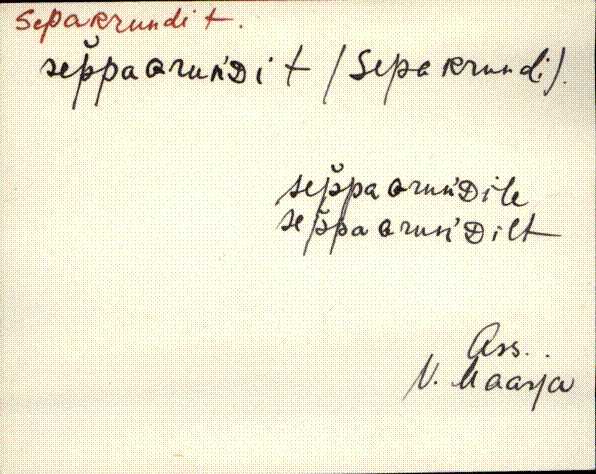 Separrundit.
sep̆paGrun'Dit (Separrundi).
sep̆paGrun'Dile
sep̆paGrun'Dilt
Ars.
V. Maarja